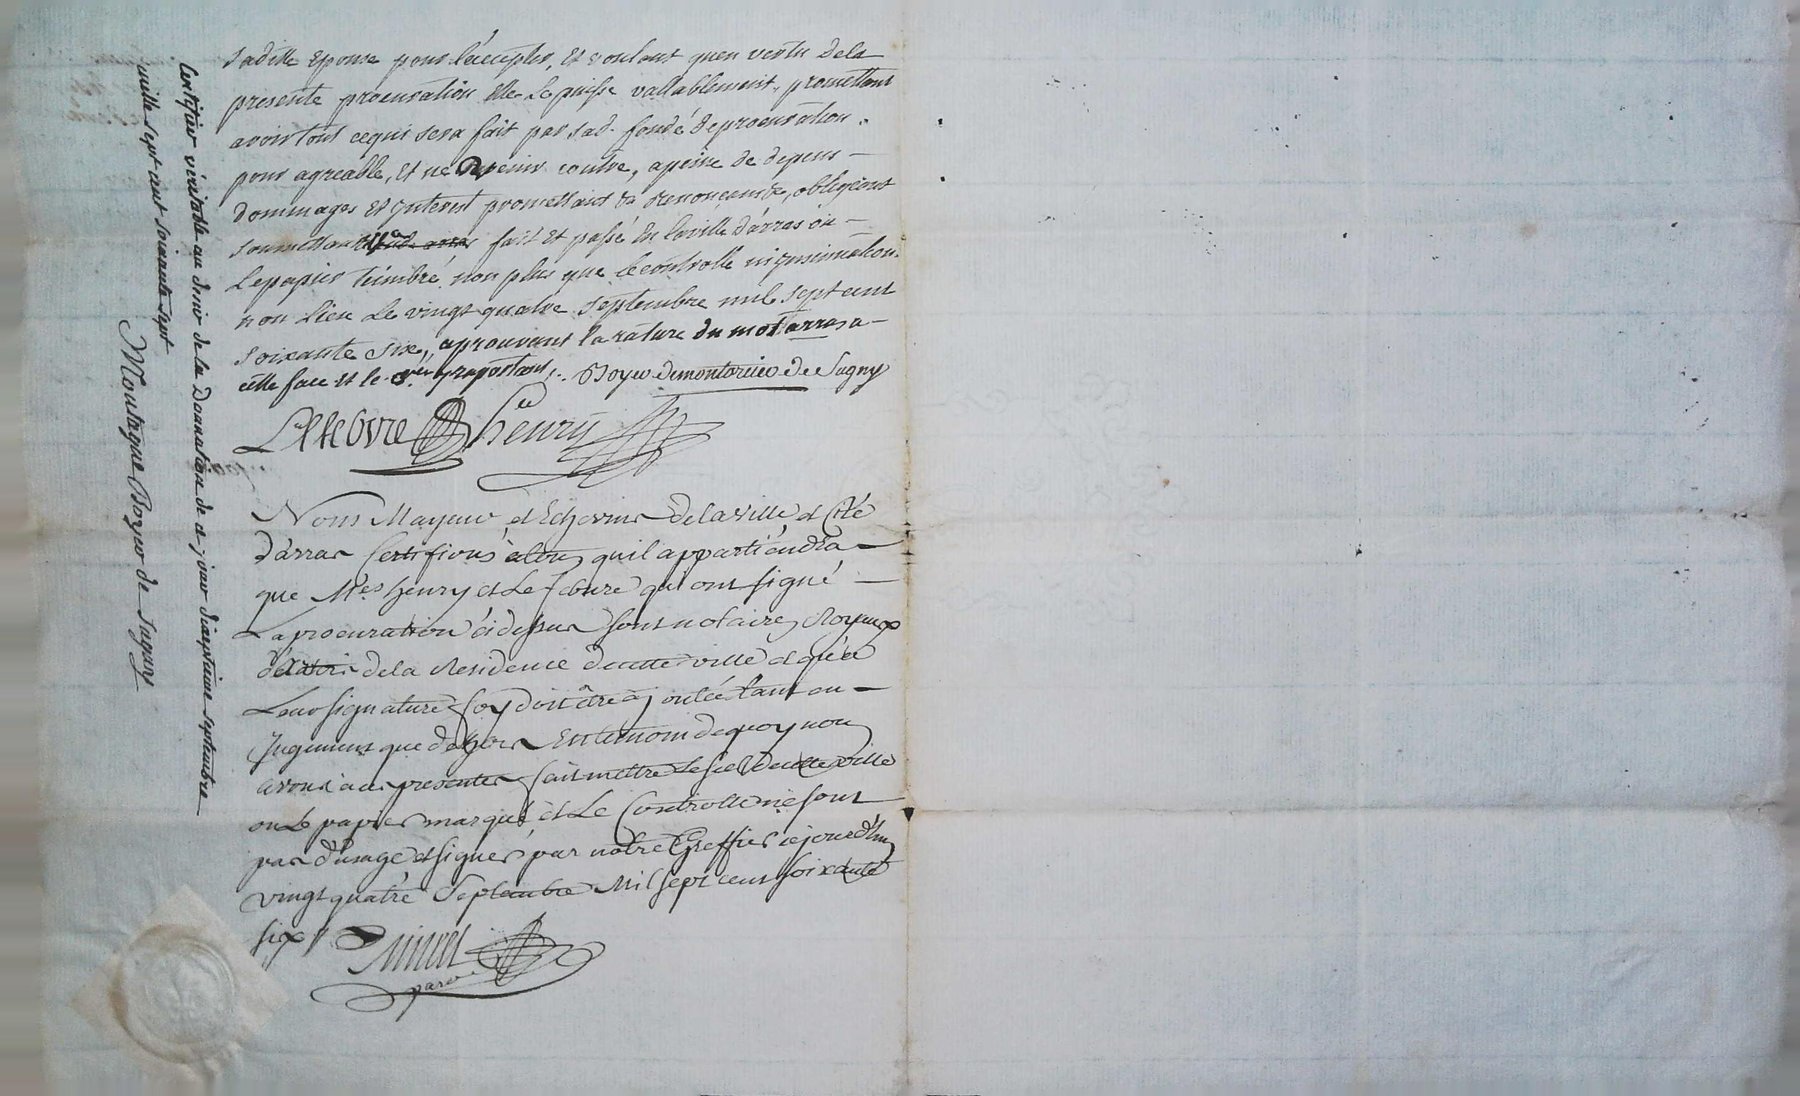 sadite Epouse pour l'accepter, Et voulant quen vertu dela
presente procuration Elle Le puisse vallablement, promettant
avoir tout cequi sera fait par sad. fondé deprocuration
pour agreable, Et ne venir contre, apeine de depens
dommages et Interest promettant &a renonceant &a, obligeant
soumettant &a fait Et passé En laville d'arras ou
Lepapier timbré non plus que lecontrolle niysinuation
non Lieu Le vingt quatre septembre mil sept cent
soixante six, aprouvant la rature du mot arras a
cette face et le Boyer demontorcier de Sugny
Lefebvre Henry
Nous Mayeur et Echevins delaville et Cité
d'arras Certifions à tous quil appartiendra
que Mes henry et Le febvre qui ont signé
La procuration ci dessus sont notaires Royaux
dela Residence decette ville et qu'a
Leur signature foy doit être ajoutée tant en
Jugement que dehors En temoin dequoy nous
avons à ces presentes fait mettre Le scel decette ville
ou Le papier marqué et Le Controlle ne sont
pas d'usage et signer par notre Greffier cejourd'huy
vingt quatre Septembre Mil sept cent soixante
six
Certifier véritable au désir de la Donnation de ce jour dixseptieme septembre
mille sept cent soixante sept
Montagne Boyer de Sugny